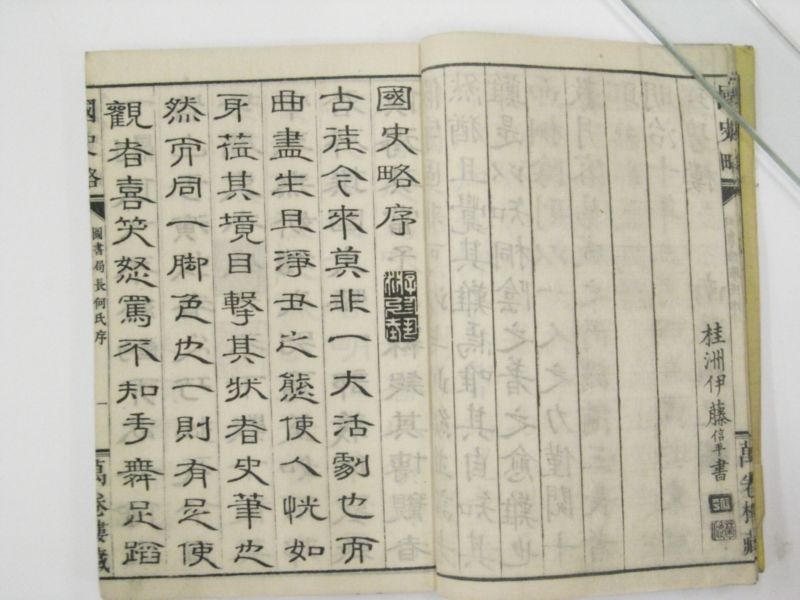 國史略
萬卷樓藏
桂洲伊藤信平書
國史略序
古往今來莫非一大活劇也而
曲盡生且淨丑之態使人恍如
身莅其境目擊其状者史筆也
然而同一脚色也一則有足使
觀者喜笑怒罵不知手舞足蹈
國史略
圖書局長何氏序
一
萬卷樓藏